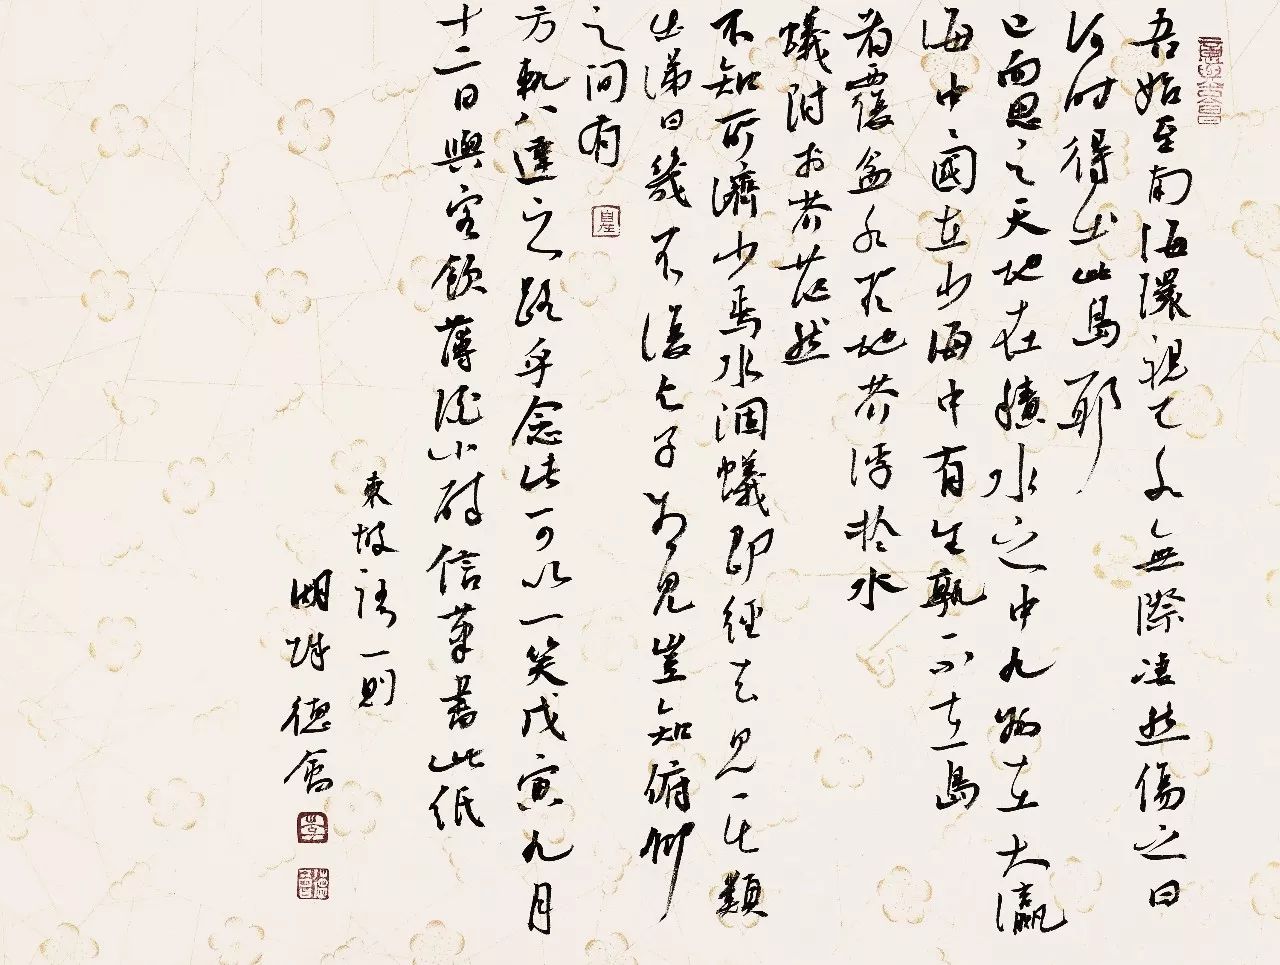 吾始至南海環視天水無際凄然傷之曰
何時得出此島耶
已而思之天地在積水之中九州在大瀛
海中〻國在少海中有生孰不在島
者覆盆水於地芥浮於水
蟻附於芥茫然
不知所濟少焉水涸蟻即徑去見其類
出涕曰幾不復与子相見豈知俯仰
之間有
方軌八達之路乎念此可以一笑戊寅九月
十二日與客飲薄酒小醉信筆書此紙
東坡語一則
德